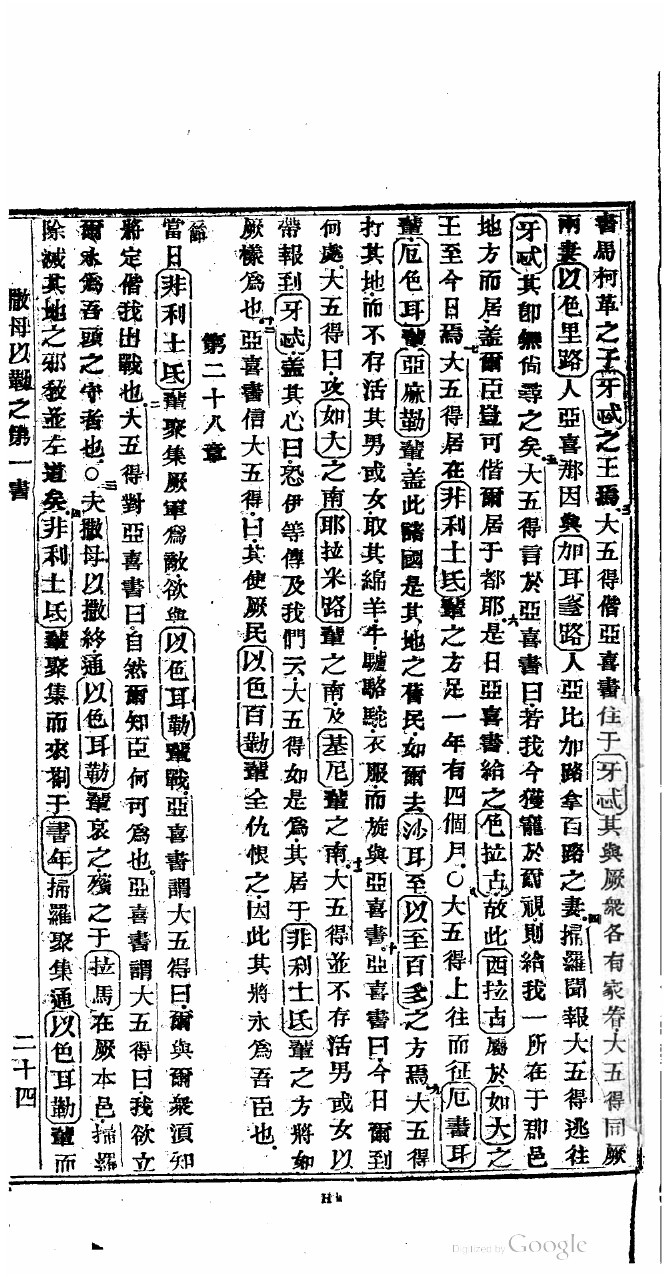 書馬柯革之子牙忒之王焉三大五得偕亞喜書住于牙忒其與厥衆各有家眷大五得同厥
兩妻以色里路人亞喜那因與加耳𡎺路人亞比加路拿百路之妻四掃羅聞報大五得逃往
牙忒其卽無尙尋之矣五大五得言於亞喜書曰若我今獲寵於爾視則給我一所在于郡邑
地方而居蓋爾臣豈可偕爾居于都耶六是日亞喜書給之色拉古故此西拉古屬於如大之
王至今日焉七大五得居在非利士氏輩之方足一年有四個月○八大五得上往而征厄書耳
輩厄色耳輩亞麻勒輩蓋此諸國是其地之舊民如爾去沙耳至以至百多之方焉九大五得
打其地而不存活其男或女取其綿羊牛驢駱駝衣服而旋與亞喜書十亞喜書曰今日爾到
何處大五得曰攻如大之南耶拉米路輩之南及基尼輩之南十一大五得並不存活男或女以
帶報到牙忒蓋其心曰恐伊等傳及我們云大五得如是爲其居于非利士氏輩之方將如
厥樣爲也十二亞喜書信大五得曰其使厥民以色百勒輩全仇恨之因此其將永爲吾臣也
第二十八章
一節當日非利士氏輩聚集厥軍爲敵欲與以色耳勒輩戰亞喜書謂大五得曰爾與爾衆須知
將定偕我出戰也二大五得對亞喜書曰自然爾知臣何可爲也亞喜書謂大五得曰我欲立
爾永爲吾頭之守者也○三夫撒母以撒終通以色耳勒輩哀之殯之于拉馬在厥本邑掃羅
除滅其地之邪敎並左道矣四非利士氏輩聚集而來劄于書年掃羅聚集通以色耳勒輩而
撒母以勒之第一書
二十四
Digitized by Google